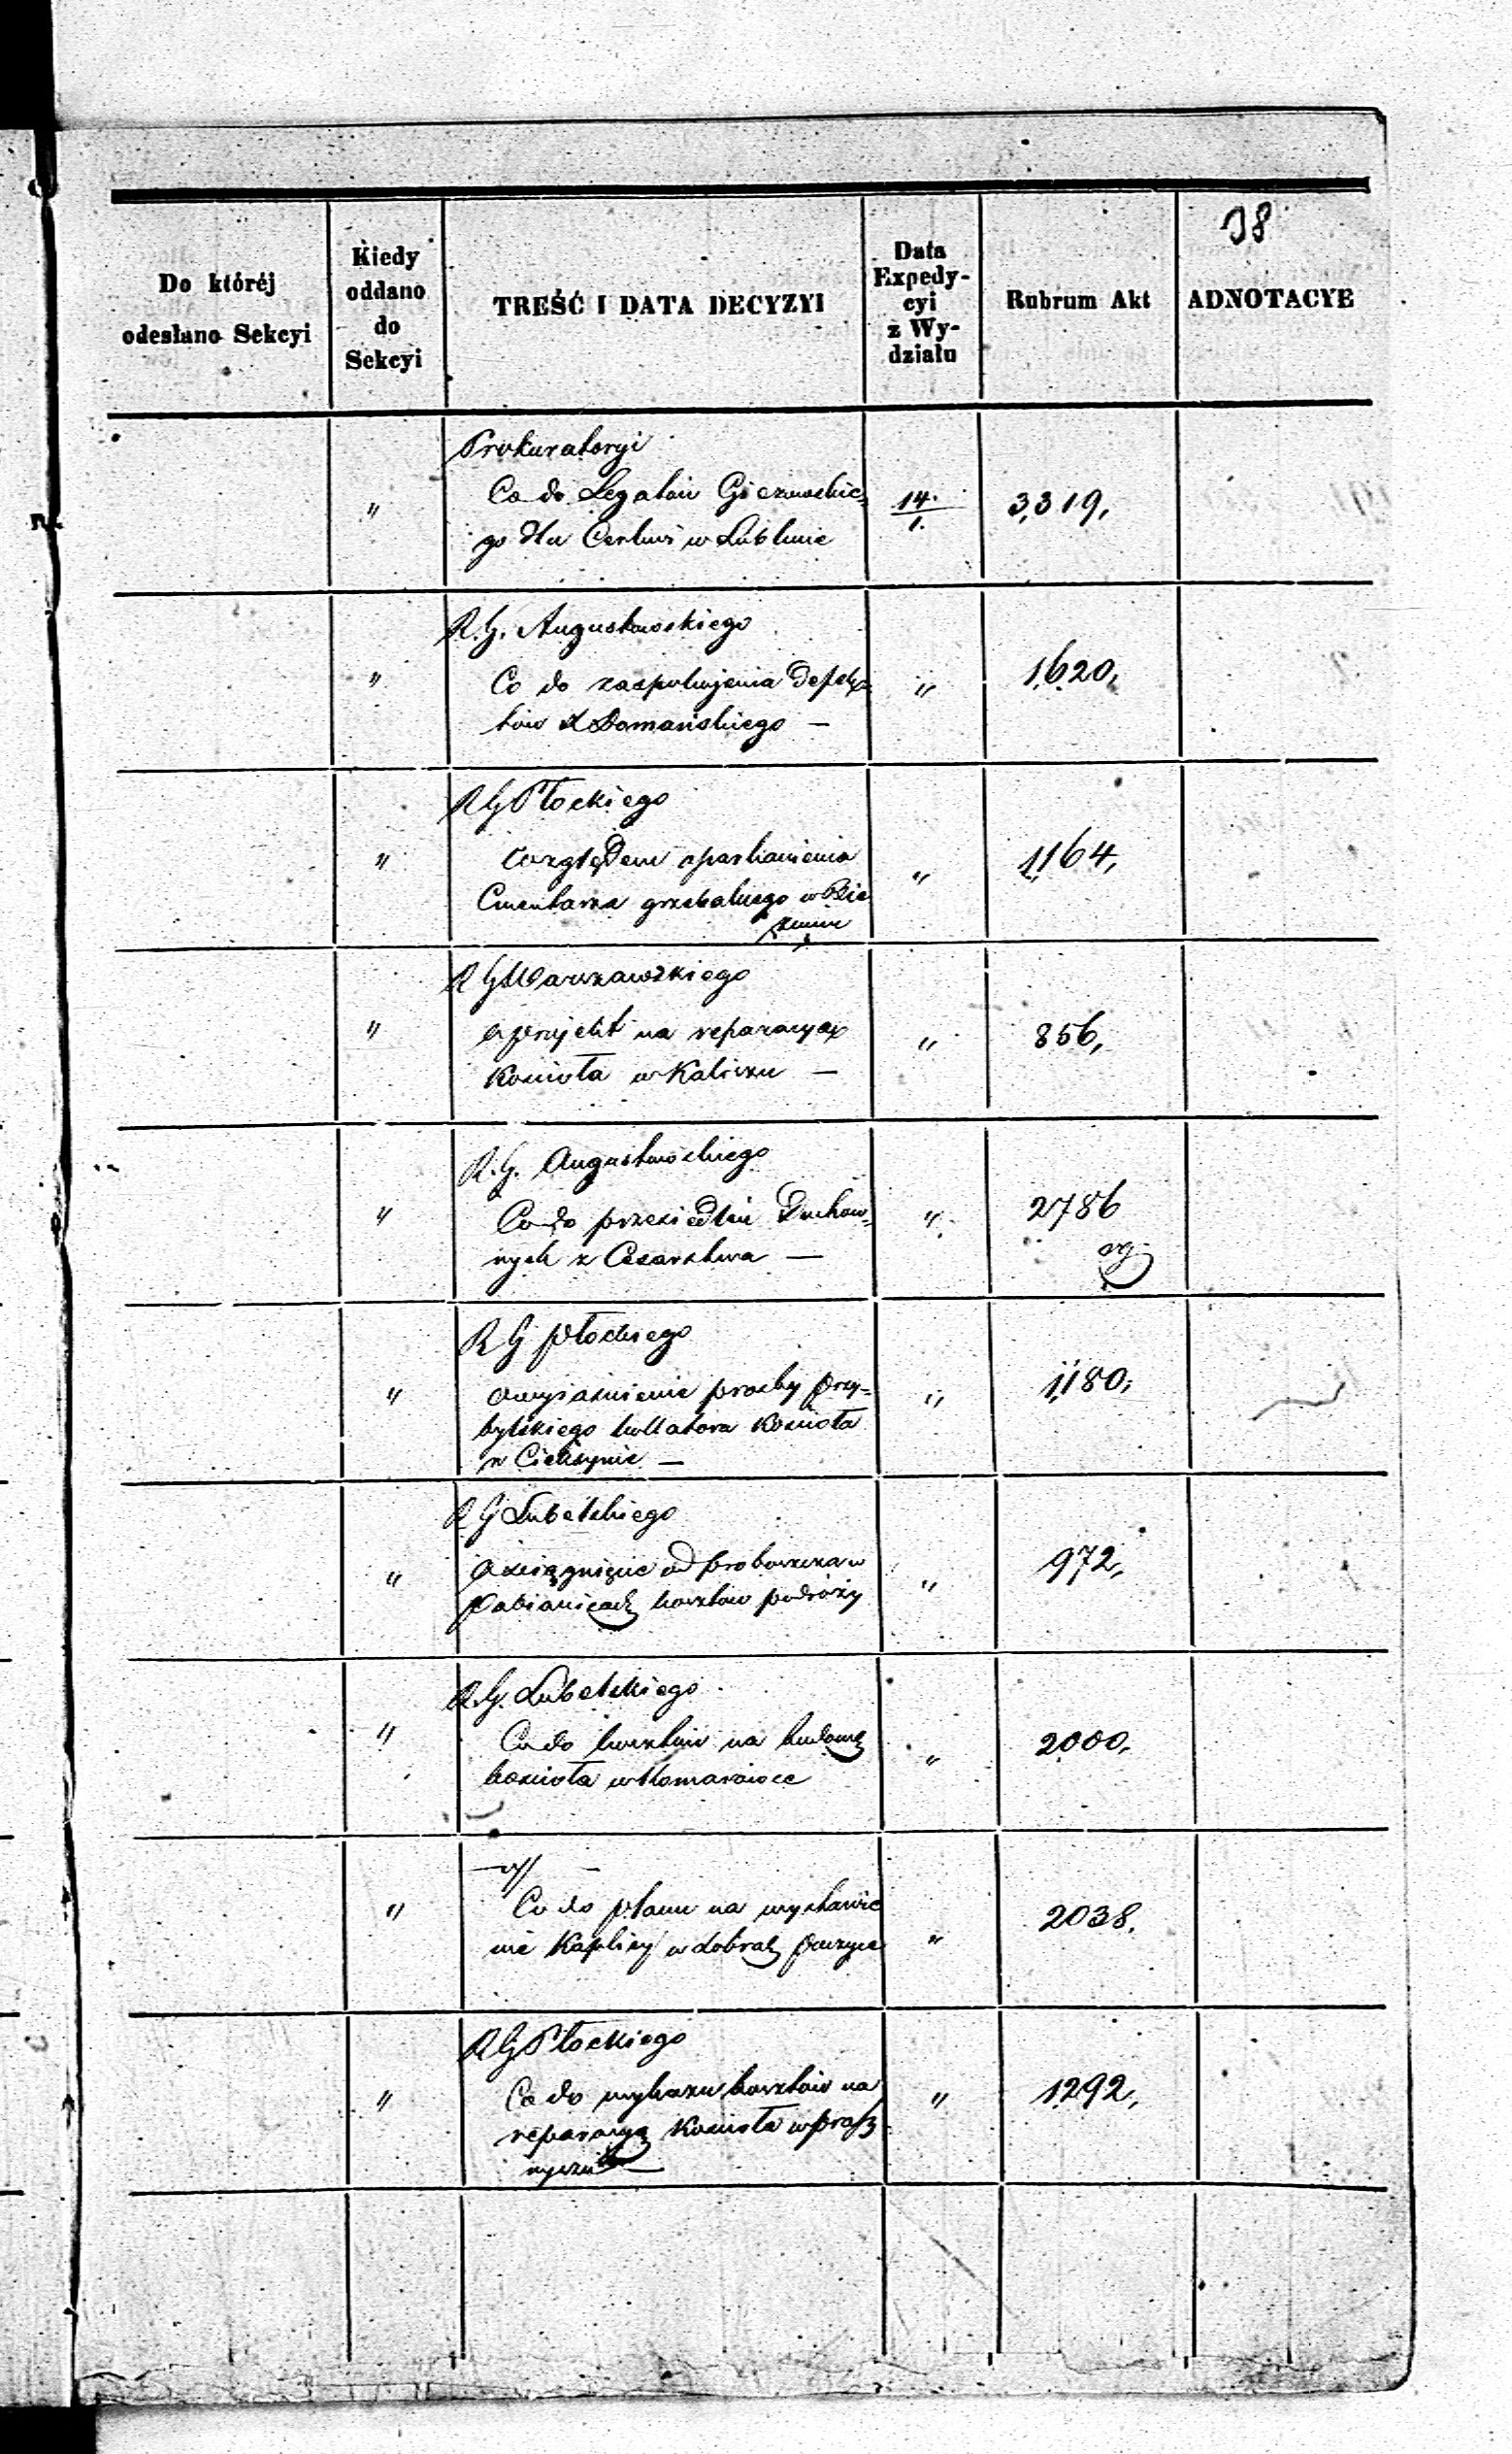 38
Do któréj
odesłano Sekcyi
Kiedy
oddano
do
Sekcyi
TREŚĆ I DATA DECYZYI
Data
Expedy-
cyi
z Wy-
działu
Rubrum Akt
ADNOTACYE
Prokuratoryi
Co do Legatów
go dla w Lublinie
"
14.
1.
3,319,
R. G. Augustowskiego
Co do zaspokojenia
tów X Domańskiego —
"
"
1,620,
R G Płockiego
względem oparkanienia
Cmentarza grzebalnego w Bie
żuniu
"
"
1,164,
R G Warszawskiego
o projekt na reparacyą
Kościoła w Kaliszu —
"
"
856,
R. G. Augustowskiego
Co do przesiedleń Duchow=
nych z Cesarstwa —
"
"
2786
R G Płockiego
o wyjaśnienie prośby Przy=
bylskiego kollatora Kościoła
w Cieksynie —
"
"
1,180,
R G Lubelskiego
o ściągnięcie od proboszcza w
Pabianicach kosztów podróży
"
"
972,
R. G. Lubelskiego
Co do kosztów na budowę
kościoła w Komarówce
"
"
2000,
Co do planu na wystawie
nie Kaplicy w dobrach
"
"
2038,
R G Płockiego
Co do wykazu kosztów na
reparacyą Kościoła w Praſz
nyszu —
"
"
1292,